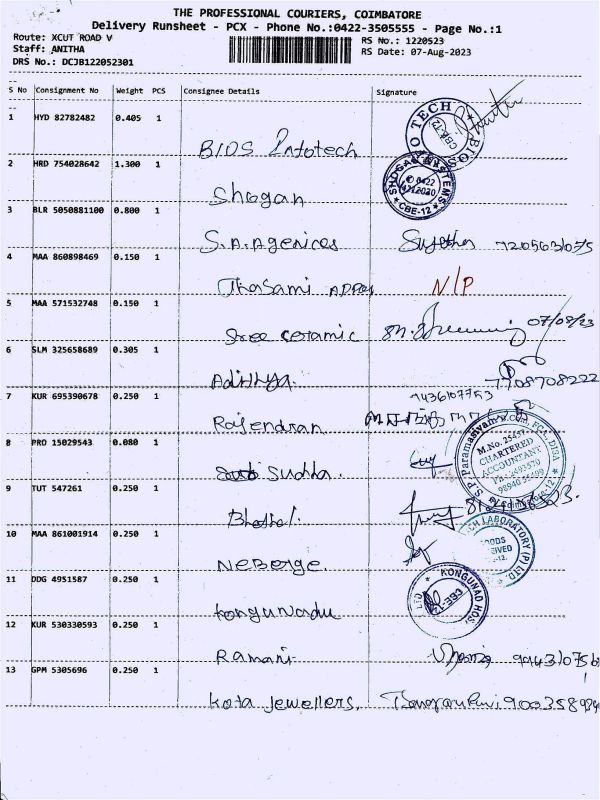 THE PROFESSIONAL COURIERS, COIMBATORE
Delivery Runsheet - PCX - Phone No.:0422-3505555 - Page No.:1
Route: XCUT ROAD V
RS No.: 1220523
Staff: ANITHA
RS Date: 07-Aug-2023
DRS No.: DCJB122052301
S No Consignment No Weight PCS Consignee Details Signature
1 HYD 82782482 0.405 1
BIOS Infotech
2 HRD 754028642 1.300 1
Shogan
3 BLR 5050881100 0.800 1
S.A.Agenices Sujetha
4 MAA 860898469 0.150 1
N/P
5 MAA 571532748 0.150 1
Sree Ceramic 07/08/23
6 SLM 325658689 0.305 1
Adithya. 7708708222
7 KUR 695390678 0.250 1
9436107753
Rajendran
8 PRO 15029543 0.080 1
Sudha.
9 TUT 547261 0.250 1
10 MAA 861001914 0.250 1
NeBerge.
11 DDG 4951587 0.250 1
Kongunadu
12 KUR 530330593 0.250 1
Ramani
13 GPM 5305696 0.250 1
Kota Jewellers.
BIOS
O TECH
CBE-12
SHOGAN SYSTEMS
0422
CBE-12
S.P. Paramasivam
FCA, DISA
CHARTERED
ACCOUNTANT
LABORATORY (P) LTD
KONGUNAD HOS